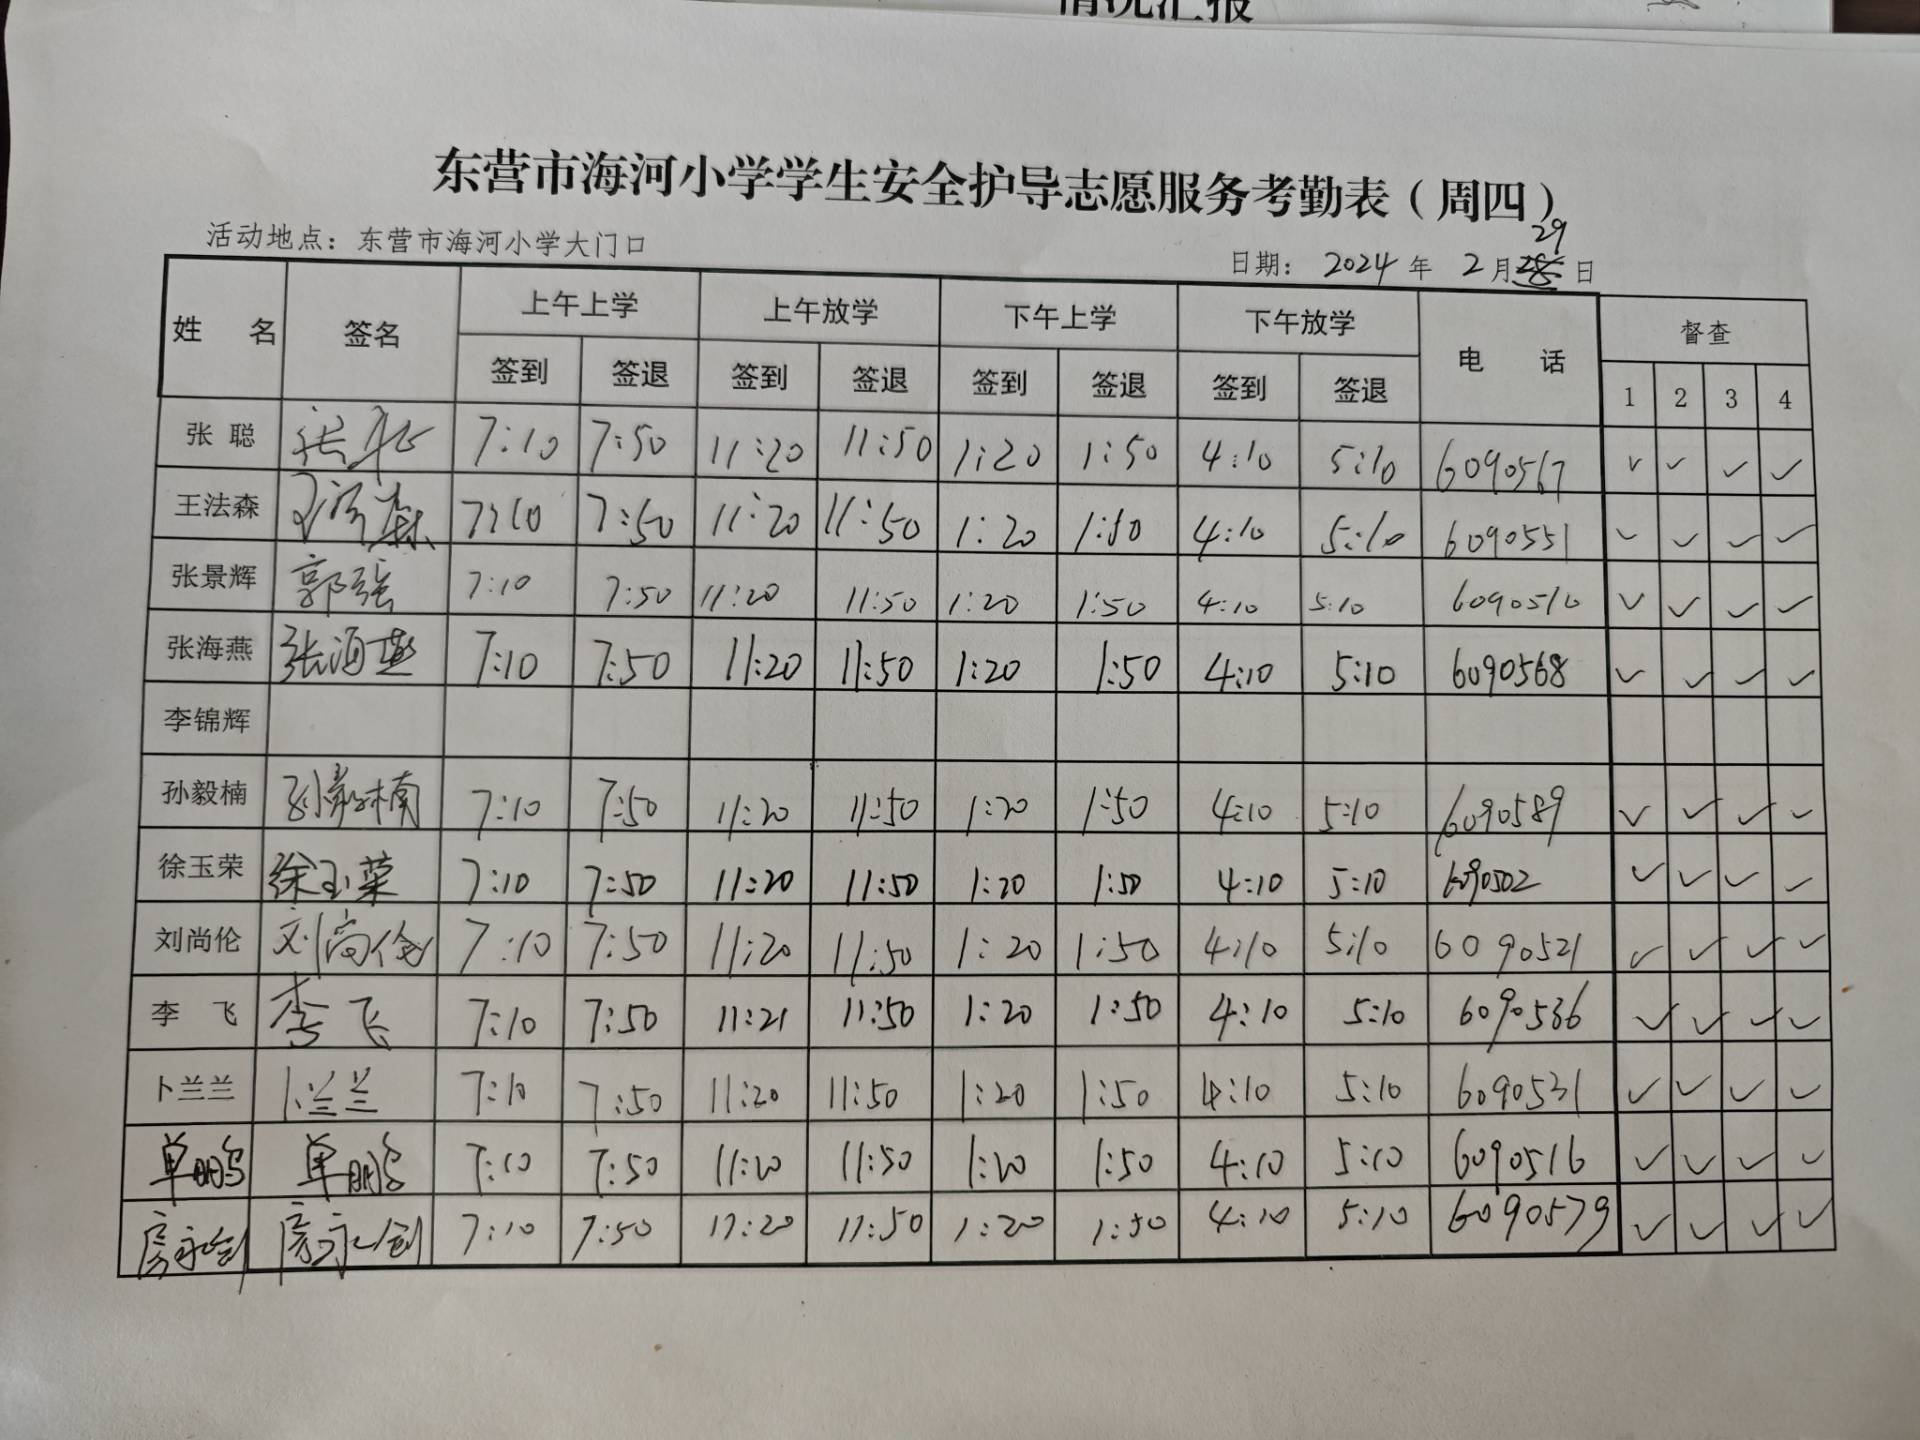 情况汇报
东营市海河小学学生安全护导志愿服务考勤表（周四）
活动地点：东营市海河小学大门口
日期： 2024 年 2 月 29 日
姓 名 签名 上午上学 上午放学 下午上学 下午放学 电 话 督查
签到 签退 签到 签退 签到 签退 签到 签退 1 2 3 4
张 聪 张 7:10 7:50 11:20 11:50 1:20 1:50 4:10 5:10 6090567 ✓ ✓ ✓ ✓
王法森 王法森 7:10 7:50 11:20 11:50 1:20 1:50 4:10 5:10 6090551 ✓ ✓ ✓ ✓
张景辉 郭强 7:10 7:50 11:20 11:50 1:20 1:50 4:10 5:10 6090510 ✓ ✓ ✓ ✓
张海燕 张海燕 7:10 7:50 11:20 11:50 1:20 1:50 4:10 5:10 6090568 ✓ ✓ ✓ ✓
李锦辉
孙毅楠 孙毅楠 7:10 7:50 11:20 11:50 1:20 1:50 4:10 5:10 6090589 ✓ ✓ ✓ ✓
徐玉荣 徐玉荣 7:10 7:50 11:20 11:50 1:20 1:50 4:10 5:10 6090502 ✓ ✓ ✓ ✓
刘尚伦 刘尚伦 7:10 7:50 11:20 11:50 1:20 1:50 4:10 5:10 6090521 ✓ ✓ ✓ ✓
李 飞 李飞 7:10 7:50 11:21 11:50 1:20 1:50 4:10 5:10 6090536 ✓ ✓ ✓ ✓
卜兰兰 卜兰兰 7:10 7:50 11:20 11:50 1:20 1:50 4:10 5:10 6090531 ✓ ✓ ✓ ✓
单鹏 单鹏 7:10 7:50 11:20 11:50 1:20 1:50 4:10 5:10 6090516 ✓ ✓ ✓ ✓
房永剑 房永剑 7:10 7:50 11:20 11:50 1:20 1:50 4:10 5:10 6090579 ✓ ✓ ✓ ✓